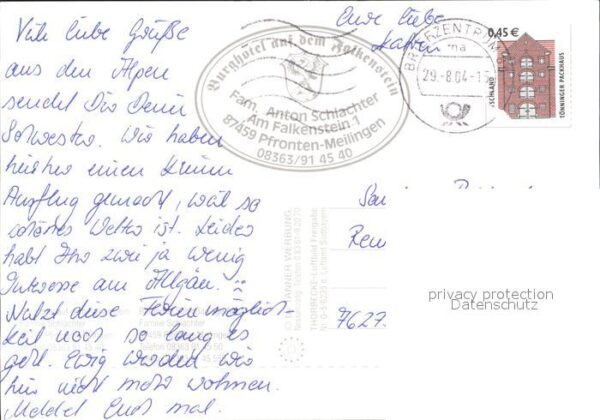 Viele liebe Grüße
aus den Alpen
sendet Dir Deine
Schwester. Wir haben
hierher einen kleinen
Ausflug gemacht, weil so
schönes Wetter ist. Leider
habt Ihr zwei ja wenig
Interesse am Allgäu.
Nutzt diese Ferienmöglich-
keit noch so lang es
geht. Ewig werden wir
hier nicht mehr wohnen.
Meldet Euch mal.
Eure liebe
Burghotel auf dem Falkenstein
Fam. Anton Schlachter
Am Falkenstein 1
87459 Pfronten-Meilingen
08363/91 45 40
BRIEFZENTRUM
29.-8.04-15
0,45 €
TÖNNINGER PACKHAUS
7627
privacy protection
Datenschutz